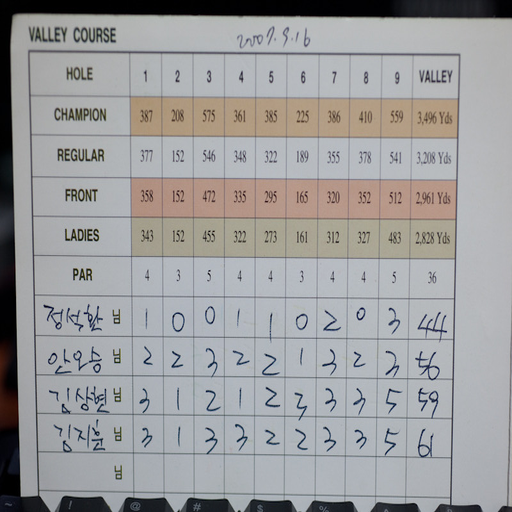 VALLEY COURSE 2007.9.16
HOLE 1 2 3 4 5 6 7 8 9 VALLEY
CHAMPION 387 208 575 361 385 225 386 410 559 3,496 Yds
REGULAR 377 152 546 348 322 189 355 378 541 3,208 Yds
FRONT 358 152 472 335 295 165 320 352 512 2,961 Yds
LADIES 343 152 455 322 273 161 312 327 483 2,828 Yds
PAR 4 3 5 4 4 3 4 4 5 36
정석환 님 1 0 0 1 1 0 2 0 3 44
안오승 님 2 2 3 2 2 1 3 2 3 56
김상현 님 3 1 2 1 2 3 3 3 5 59
김지훈 님 3 1 3 3 2 2 3 3 5 61
님